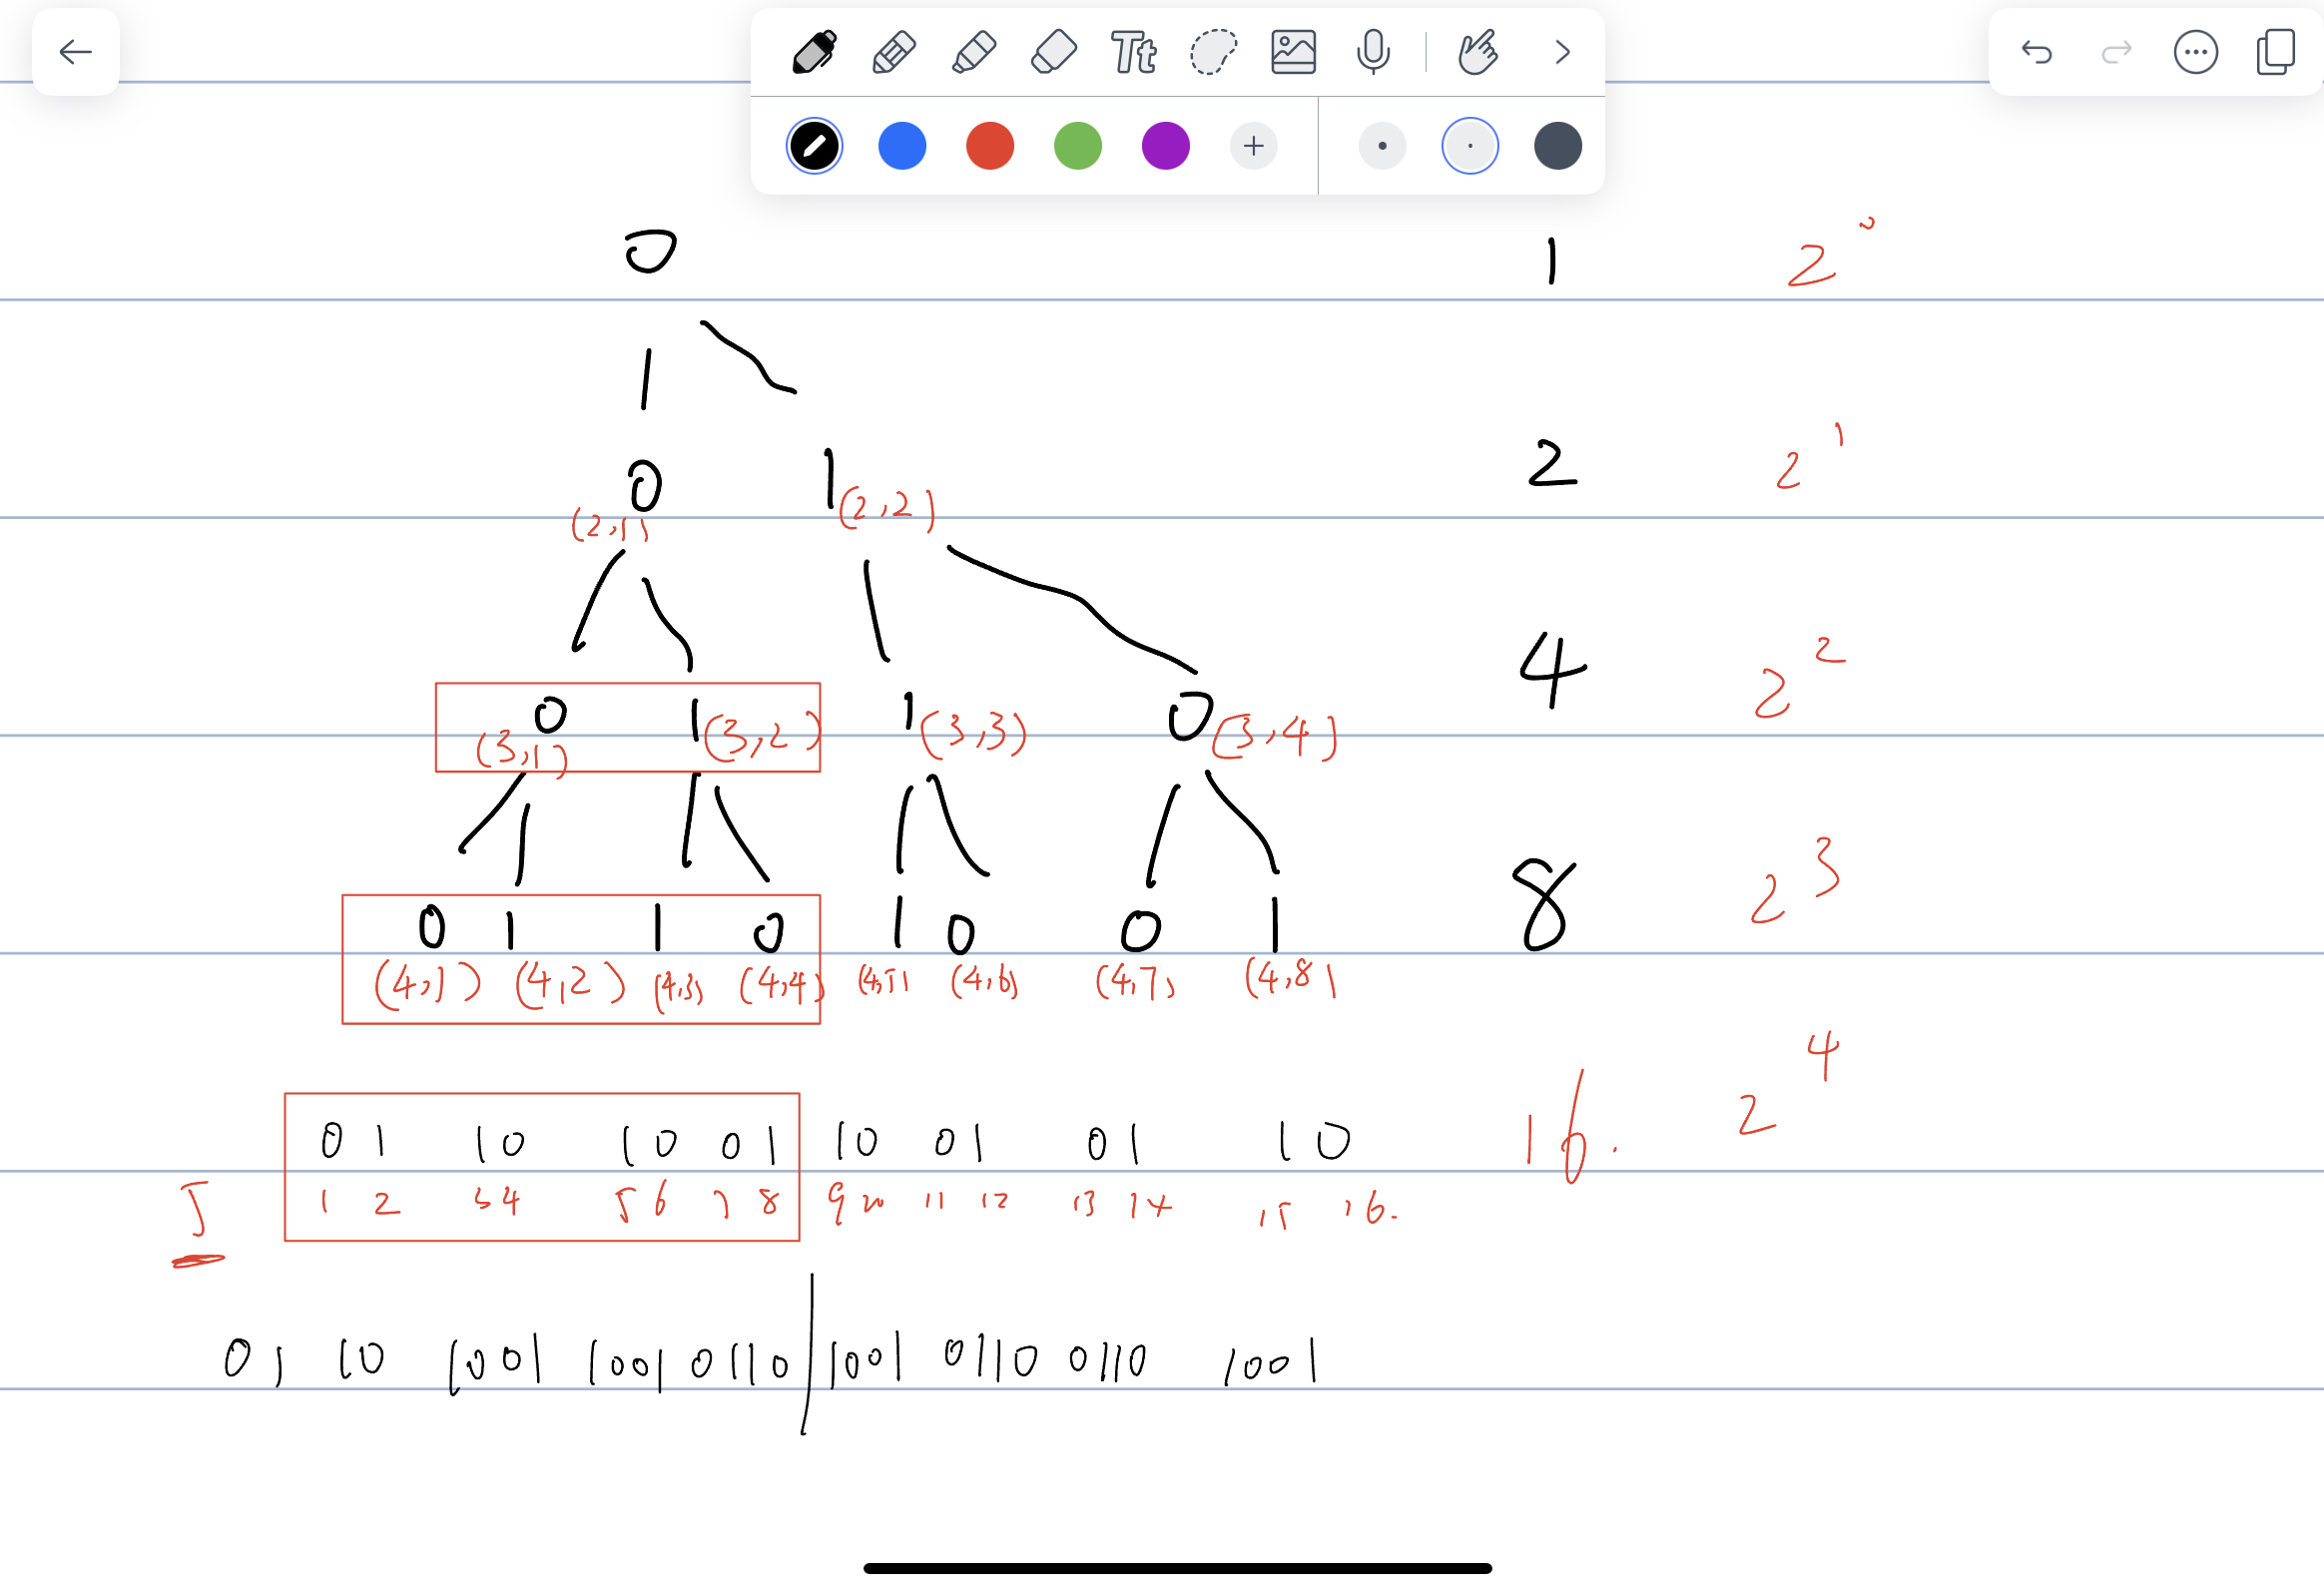 Tt
0 1 2^0
0 1 (2,2) 2 2^1
(2,1)
0 1 (3,2) 1 (3,3) 0 (3,4) 4 2^2
(3,1)
0 1 1 0 1 0 0 1 8 2^3
(4,1) (4,2) (4,3) (4,4) (4,5) (4,6) (4,7) (4,8)
0 1 10 10 01 10 01 01 10 16. 2^4
5 1 2 3 4 5 6 7 8 9 10 11 12 13 14 15 16.
01 10 1001 1001 0110 1001 0110 0110 1001